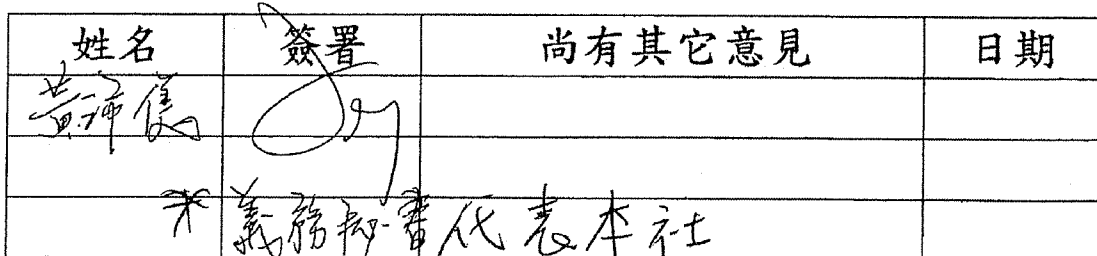 姓名 簽署 尚有其它意見 日期
黃沛儀
* 義務秘書代表本社